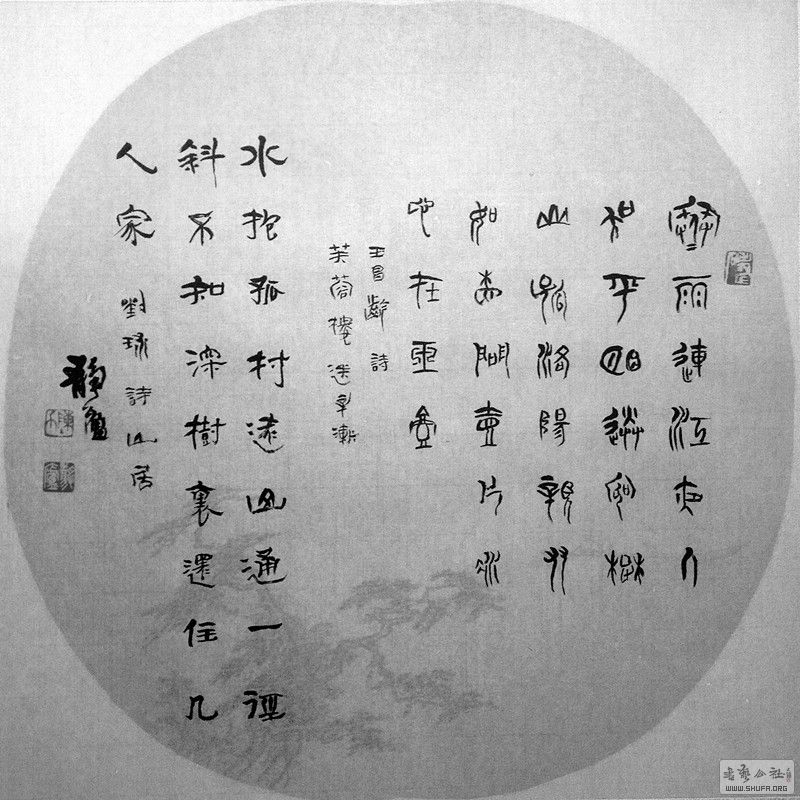 寒雨連江夜入
吳平明送客楚
山孤洛陽親友
如相問壹片冰
心在玉壺
王昌齡詩
芙蓉樓送辛漸
水抱孤村遠山通一徑
斜不知深樹裏還住几
人家
劉球詩山居
靜盦
书艺公社
WWW.SHUFA.ORG